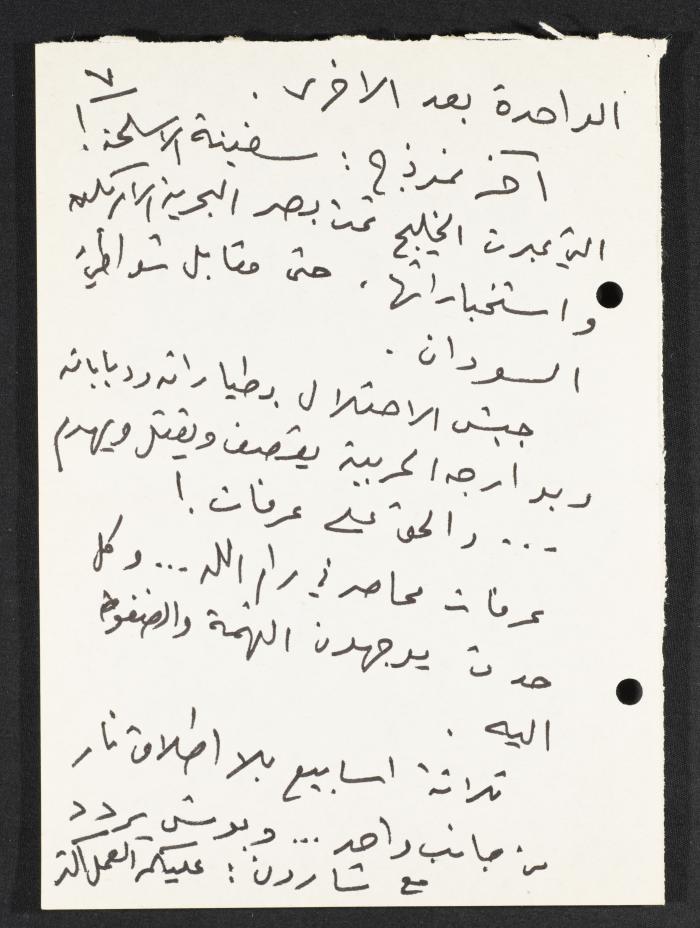 ٧
الواحدة بعد الاخرى .
آخر نموذج : سفينة الاسلحة !
التي عبرت الخليج تحت بصر البحرية الامريكية
واستخباراتها ، حتى مقابل شواطئ
السودان .
جيش الاحتلال بطياراته ودباباته
وبوارجه الحربية يقصف ويقتل ويهدم
... والحق على عرفات !
عرفات محاصر في رام الله ... وكل
حدث يوجهون التهمة والضغوط
اليه .
ثلاثة اسابيع بلا اطلاق نار
من جانب واحد ... وبوش يردد
مع شارون : عليكم العمل اكثر